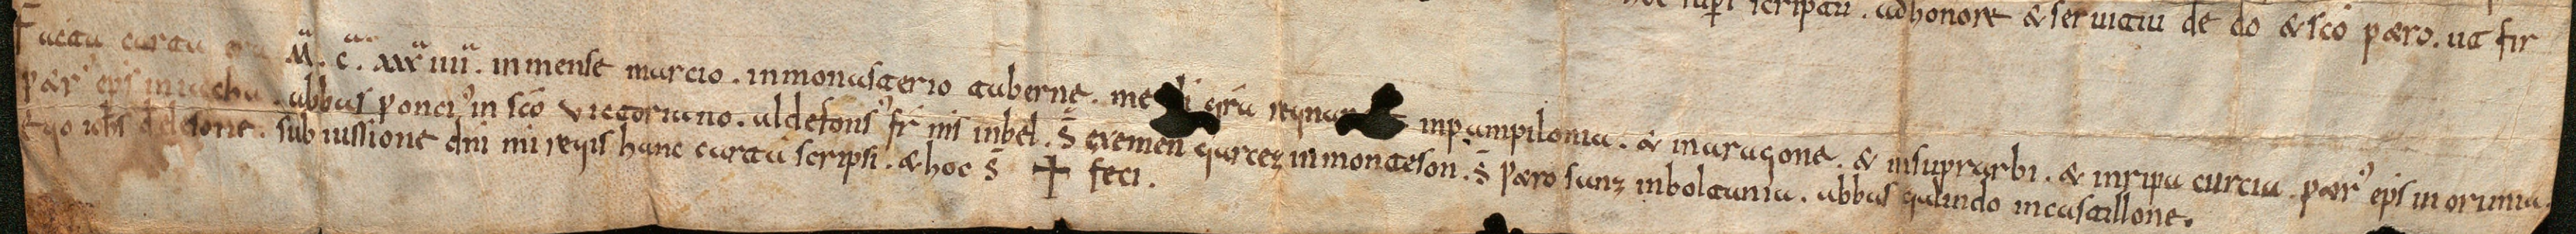 hoc sup scriptu. ad honore & seruitiu de do & sco petro. ut fir
Facta carta era M. c. xxx iiii. in mense marcio. in monasterio taberne. me regnante in pampilonia. & in aragone. & in suprarbi. & in ripa curcia. petr' eps in orunia.
petr' eps in iacha. abbas ponci' in sco victoriano. aldefons' fr ms in bel. S exemen garcez in monteson. S petro sanz in boltania. abbas galindo in castillone.
Ego sub iussione dni mi regis hanc carta scripsi. & hoc S + feci.